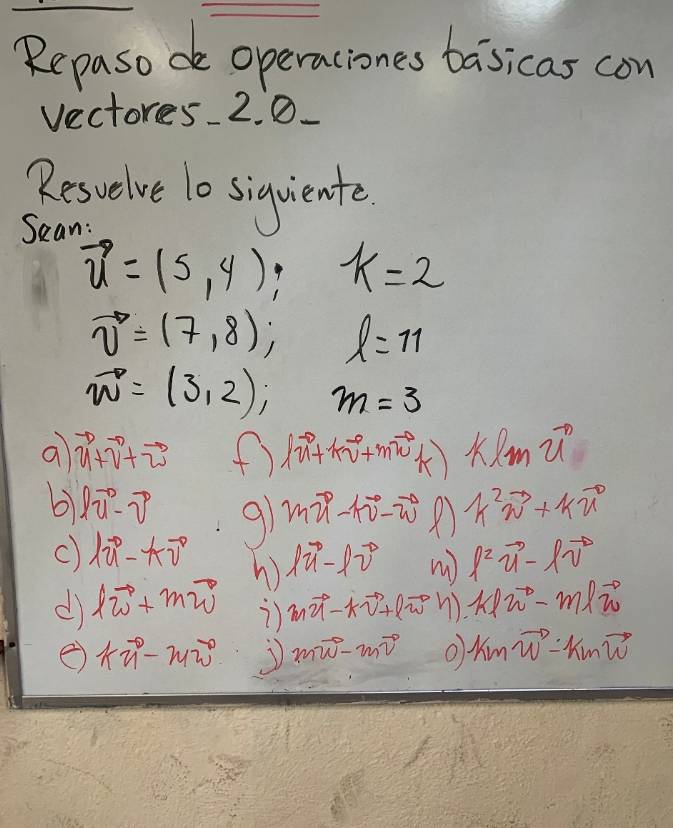 Repaso de operaciones básicas con
vectores_2.0_
Resuelve lo siguiente.
Sean:
u⃗ = (5,4); k=2
v⃗ = (7,8); l=11
w⃗ = (3,2); m=3
a) u⃗+v⃗+w⃗ f) lu⃗+kv⃗+mw⃗ k) klm u⃗
b) lu⃗-v⃗ g) mu⃗-kv⃗-w⃗ l) k²w⃗+ku⃗
c) lu⃗-kv⃗ h) lu⃗-lv⃗ m) l²u⃗-lv⃗
d) lw⃗+mw⃗ i) mu⃗-kv⃗+lw⃗ n) klw⃗-mlw⃗
e) ku⃗-mw⃗ j) mw⃗-mv⃗ o) kmw⃗-kmw⃗